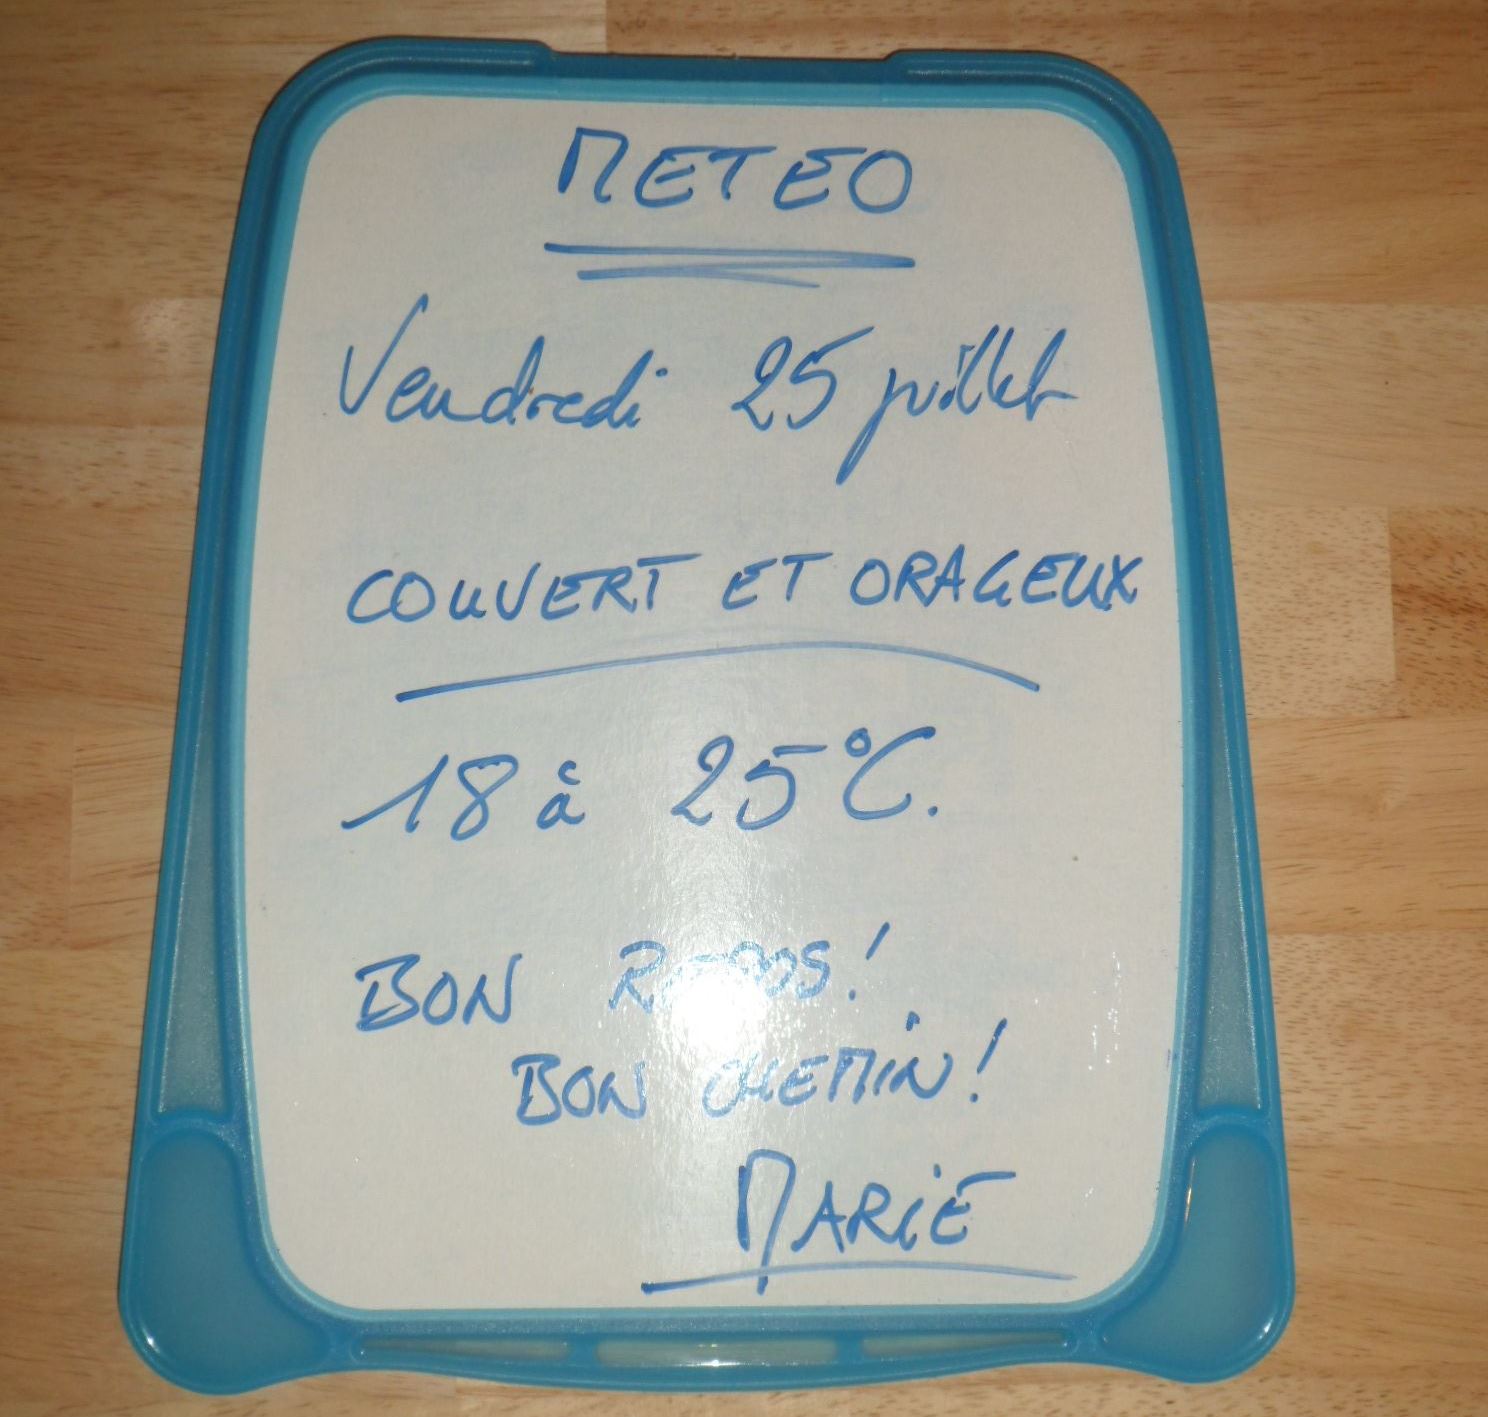 METEO
Vendredi 25 juillet
COUVERT ET ORAGEUX
18 à 25°C.
BON REPOS!
BON CHEMIN!
MARIE